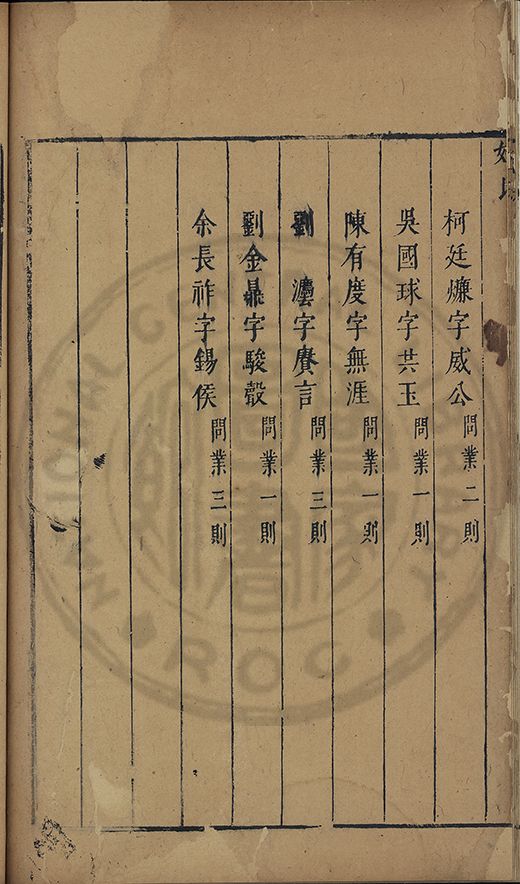 柯廷㷩字威公問業二則
吳國球字共玉問業一則
陳有度字無涯問業一則
劉 字賡言問業三則
劉金鼎字駿聲問業一則
余長祚字錫侯問業三則